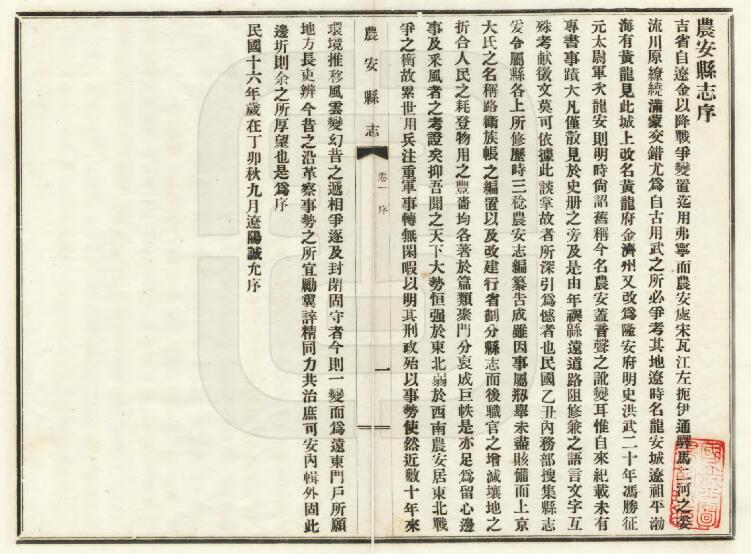 農安縣志序
吉省自遼金以降戰爭變置迄用弗寧而農安處宋瓦江左扼伊通驛馬二河之委
流川原繚繞滿蒙交錯尤爲自古用武之所必爭考其地遼時名龍安城遼祖平渤
海有黃龍見此城上改名黃龍府金濟州又改爲隆安府明史洪武二十年馮勝征
元太尉軍次龍安則明時尙沿舊稱今名農安蓋音聲之訛變耳惟自來紀載未有
專書事蹟大凡僅散見於史册之旁及是由年禩緜遠道路阻修兼之語言文字互
殊考獻徵文莫可依據此談掌故者所深引爲憾者也民國乙丑內務部搜集縣志
爰令屬縣各上所修歷時三稔農安志編纂告成雖因事屬剏舉未盡賅備而上京
大氏之名稱路衞族帳之編置以及改建行省劃分縣志而後職官之增減壤地之
折合人民之耗登物用之豐嗇均各著於篇類聚門分裒成巨帙是亦足爲留心邊
事及釆風者之考證矣抑吾聞之天下大勢恒强於東北弱於西南農安居東北戰
爭之衝故累世用兵注重軍事轉無閑暇以明其刑政殆以事勢使然近數十年來
農安縣志
卷一
序
一
環境推移風雲變幻昔之遞相爭逐及封閉固守者今則一變而爲遠東門戶所願
地方長吏辨今昔之沿革察事勢之所宜勵冀誶精同力共治庶可安內輯外固此
邊圻則余之所厚望也是爲序
民國十六年歲在丁卯秋九月遼陽誠允序